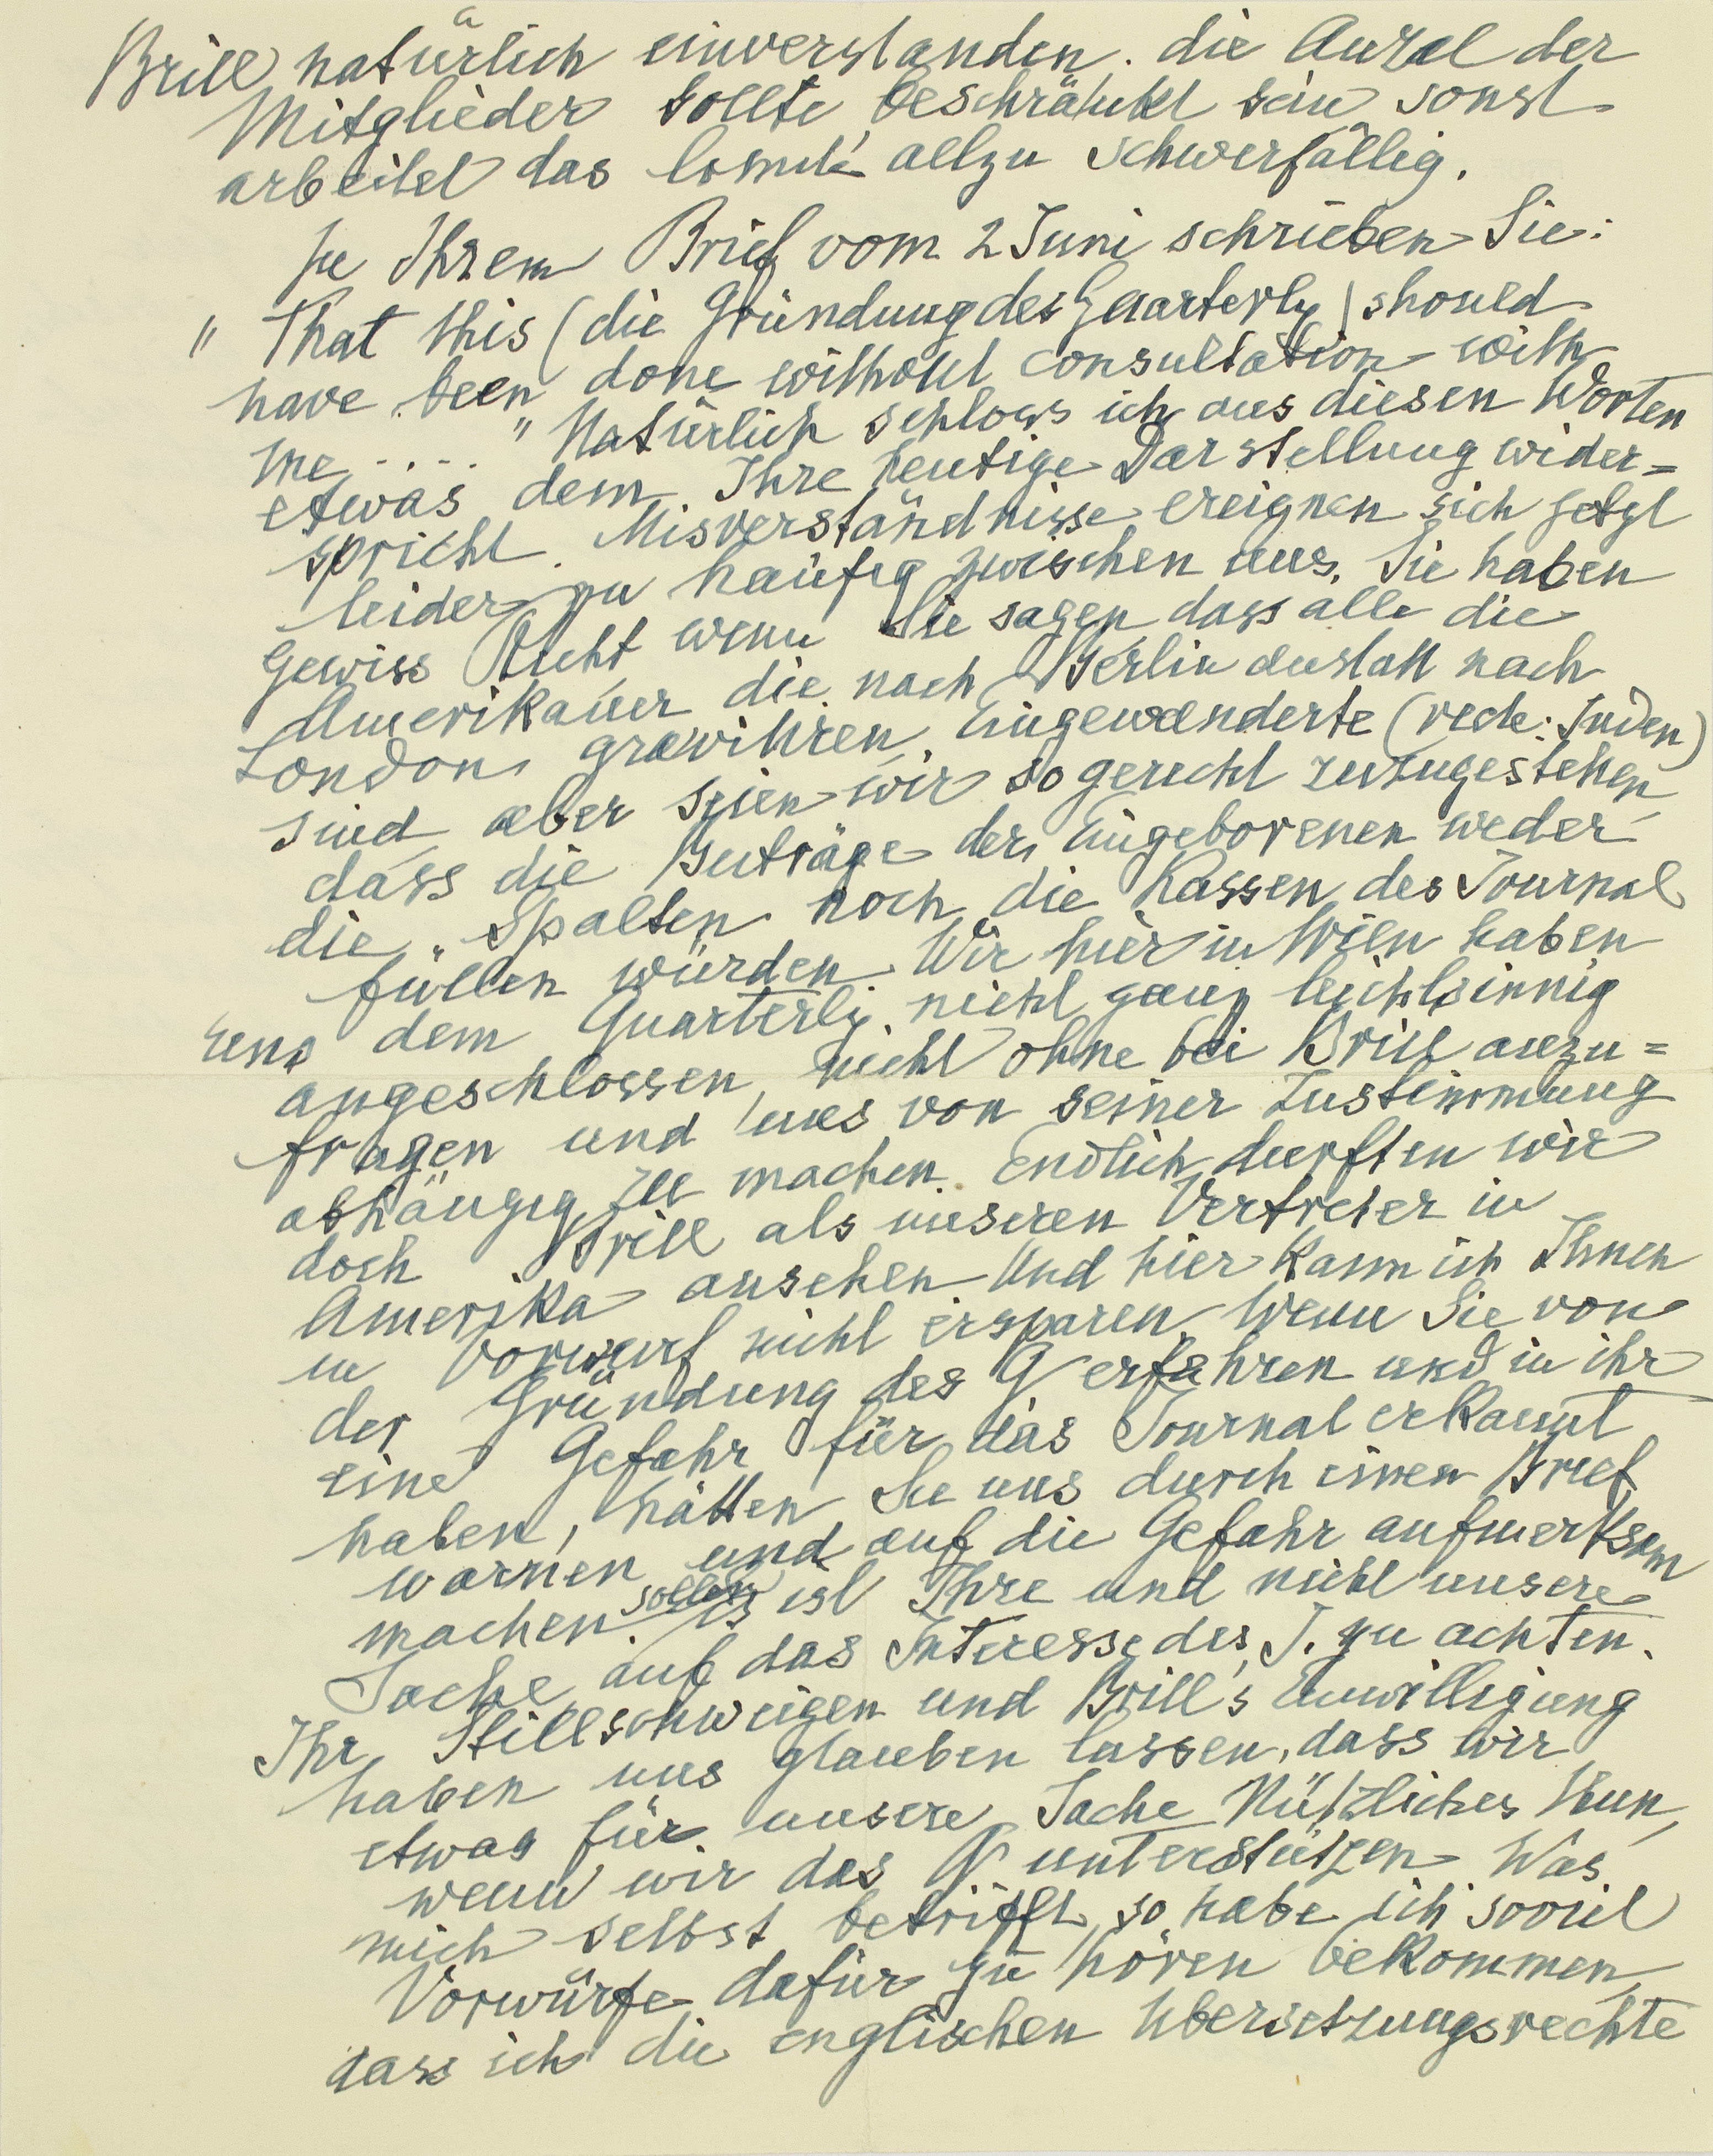 Brill natürlich einverstanden. die Anzal der
Mitglieder sollte beschränkt sein sonst
arbeitet das Comité allzu schwerfällig.
In Ihrem Brief vom 2 Juni schrieben Sie:
" That this (die Gründung des Quarterly) should
have been done without consultation with
me ..... " Natürlich schloss ich aus diesen Worten
etwas dem Ihre heutige Darstellung wider=
spricht. Misverständnisse ereignen sich jetzt
leider zu häufig zwischen uns. Sie haben
gewiss Recht wenn Sie sagen dass alle die
Amerikaner die nach Berlin anstatt nach
London gravitiren, Eingewanderte (recte: Juden)
sind aber seien wir so gerecht zuzugestehen
dass die Beiträge der Eingeborenen weder
die Spalten noch die Kassen des Journal
füllen würden. Wir hier in Wien haben
uns dem Quarterly nicht ganz leichtsinnig
angeschlossen, nicht ohne bei Brill anzu=
fragen und uns von seiner Zustimmung
abhängig zu machen. Endlich durften wir
doch Brill als unseren Vertreter in
Amerika ansehen. Und hier kann ich Ihnen
en Vorwurf nicht ersparen. Wenn Sie von
der Gründung des Q erfahren und in ihr
eine Gefahr für das Journal erkannt
haben, hätten Sie uns durch einen Brief
warnen und auf die Gefahr aufmerksam
machen sollen. Es ist Ihre und nicht unsere
Sache auf das Interesse des J. zu achten.
Ihr Stillschweigen und Brill's Einwilligung
haben uns glauben lassen, dass wir
etwas für unsere Sache Nützliches thun,
wenn wir das Q unterstützen. Was
mich selbst betrifft, so habe ich soviel
Vorwürfe dafür zu hören bekommen,
dass ich die englischen Übersetzungsrechte